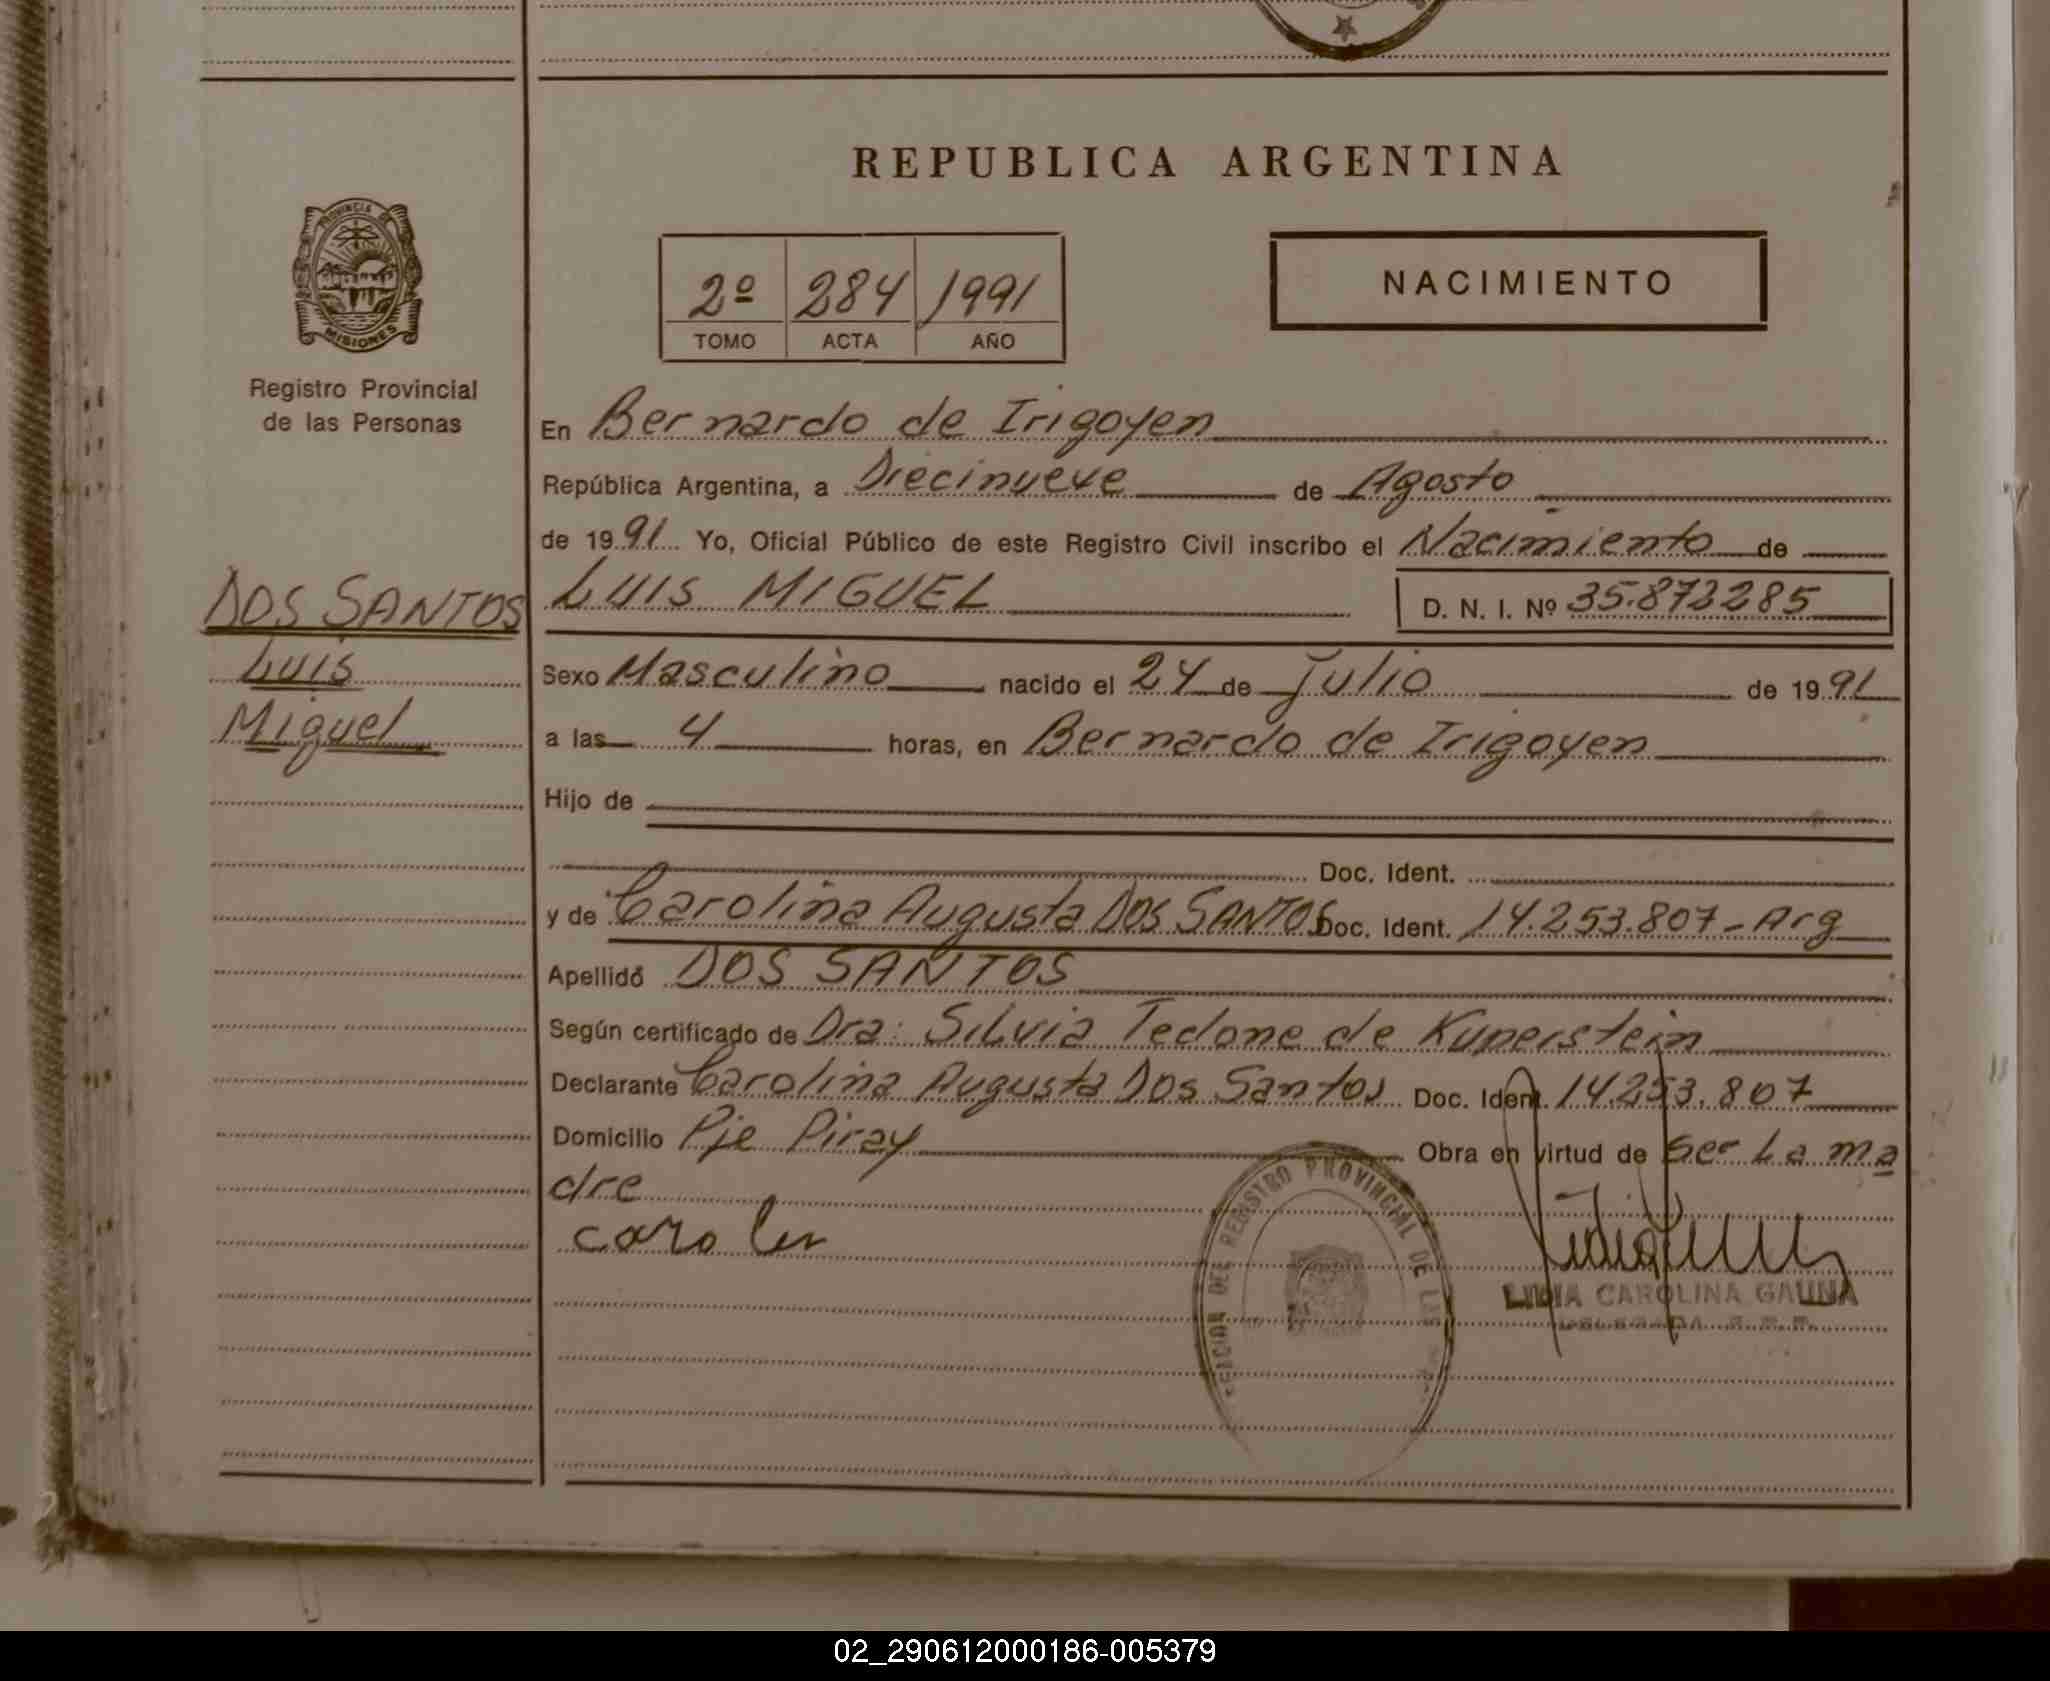 REPUBLICA ARGENTINA
PROVINCIA DE
MISIONES
Registro Provincial
de las Personas
2º 284 1991
TOMO ACTA AÑO
NACIMIENTO
DOS SANTOS
Luis
Miguel
En Bernardo de Irigoyen
República Argentina, a Diecinueve de Agosto
de 1991 Yo, Oficial Público de este Registro Civil inscribo el Nacimiento de
LUIS MIGUEL D. N. I. Nº 35.872285
Sexo Masculino nacido el 24 de Julio de 1991
a las 4 horas, en Bernardo de Irigoyen
Hijo de
Doc. Ident.
y de Carolina Augusta DOS SANTOS Doc. Ident. 14.253.807-Arg
Apellido DOS SANTOS
Según certificado de Dra: Silvia Tedone de Kuperstein
Declarante Carolina Augusta Dos Santos Doc. Ident. 14.253.807
Domicilio Pje Piray Obra en virtud de Ser La ma
dre
REGISTRO PROVINCIAL DE LAS
LIDIA CAROLINA GAUNA
DELEGADA R.P.P.
02_290612000186-005379